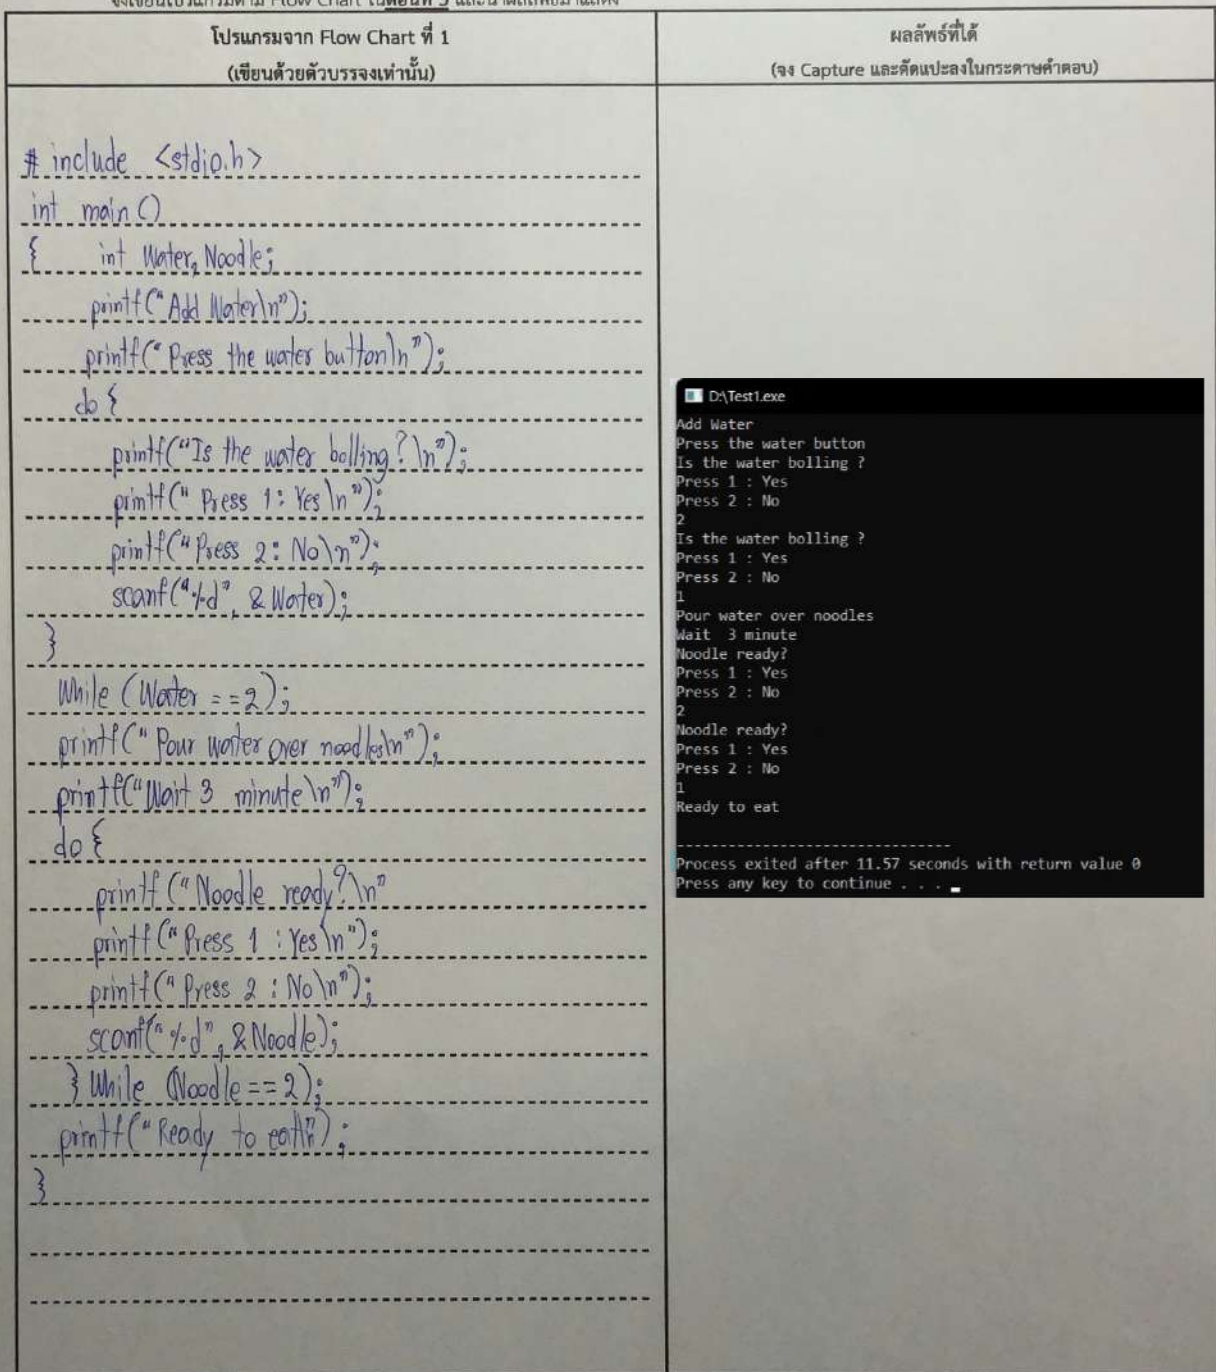 จงเขียนโปรแกรมตาม Flow Chart ในตอนที่ 3 และนำผลลัพธ์มาแสดง
โปรแกรมจาก Flow Chart ที่ 1
(เขียนด้วยตัวบรรจงเท่านั้น)
# include <stdio.h>
int main ()
{ int Water, Noodle;
printf("Add Water\n");
printf("Press the water button\n");
do {
printf("Is the water bolling?\n");
printf("Press 1: Yes\n");
printf("Press 2: No\n");
scanf("%d", &Water);
}
While (Water ==2);
printf("Pour water over noodles\n");
printf("Wait 3 minute\n");
do {
printf ("Noodle ready?\n"
printf("Press 1 : Yes\n");
printf("Press 2 : No\n");
scanf("%d", &Noodle);
} While (Noodle == 2);
printf("Ready to eat\n");
}
ผลลัพธ์ที่ได้
(จง Capture และตัดแปะลงในกระดาษคำตอบ)
D:\Test1.exe
Add Water
Press the water button
Is the water bolling ?
Press 1 : Yes
Press 2 : No
2
Is the water bolling ?
Press 1 : Yes
Press 2 : No
1
Pour water over noodles
Wait  3 minute
Noodle ready?
Press 1 : Yes
Press 2 : No
2
Noodle ready?
Press 1 : Yes
Press 2 : No
1
Ready to eat
--------------------------------
Process exited after 11.57 seconds with return value 0
Press any key to continue . . .